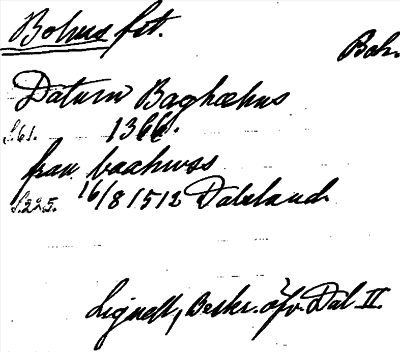 Bohus fst.
Boh.
Datum Baghœhus
S.61. 1366.
fran baahwss
S.225. 16/8 1512 Dalsland
Lignell, Beskr. öfv. Dal II.